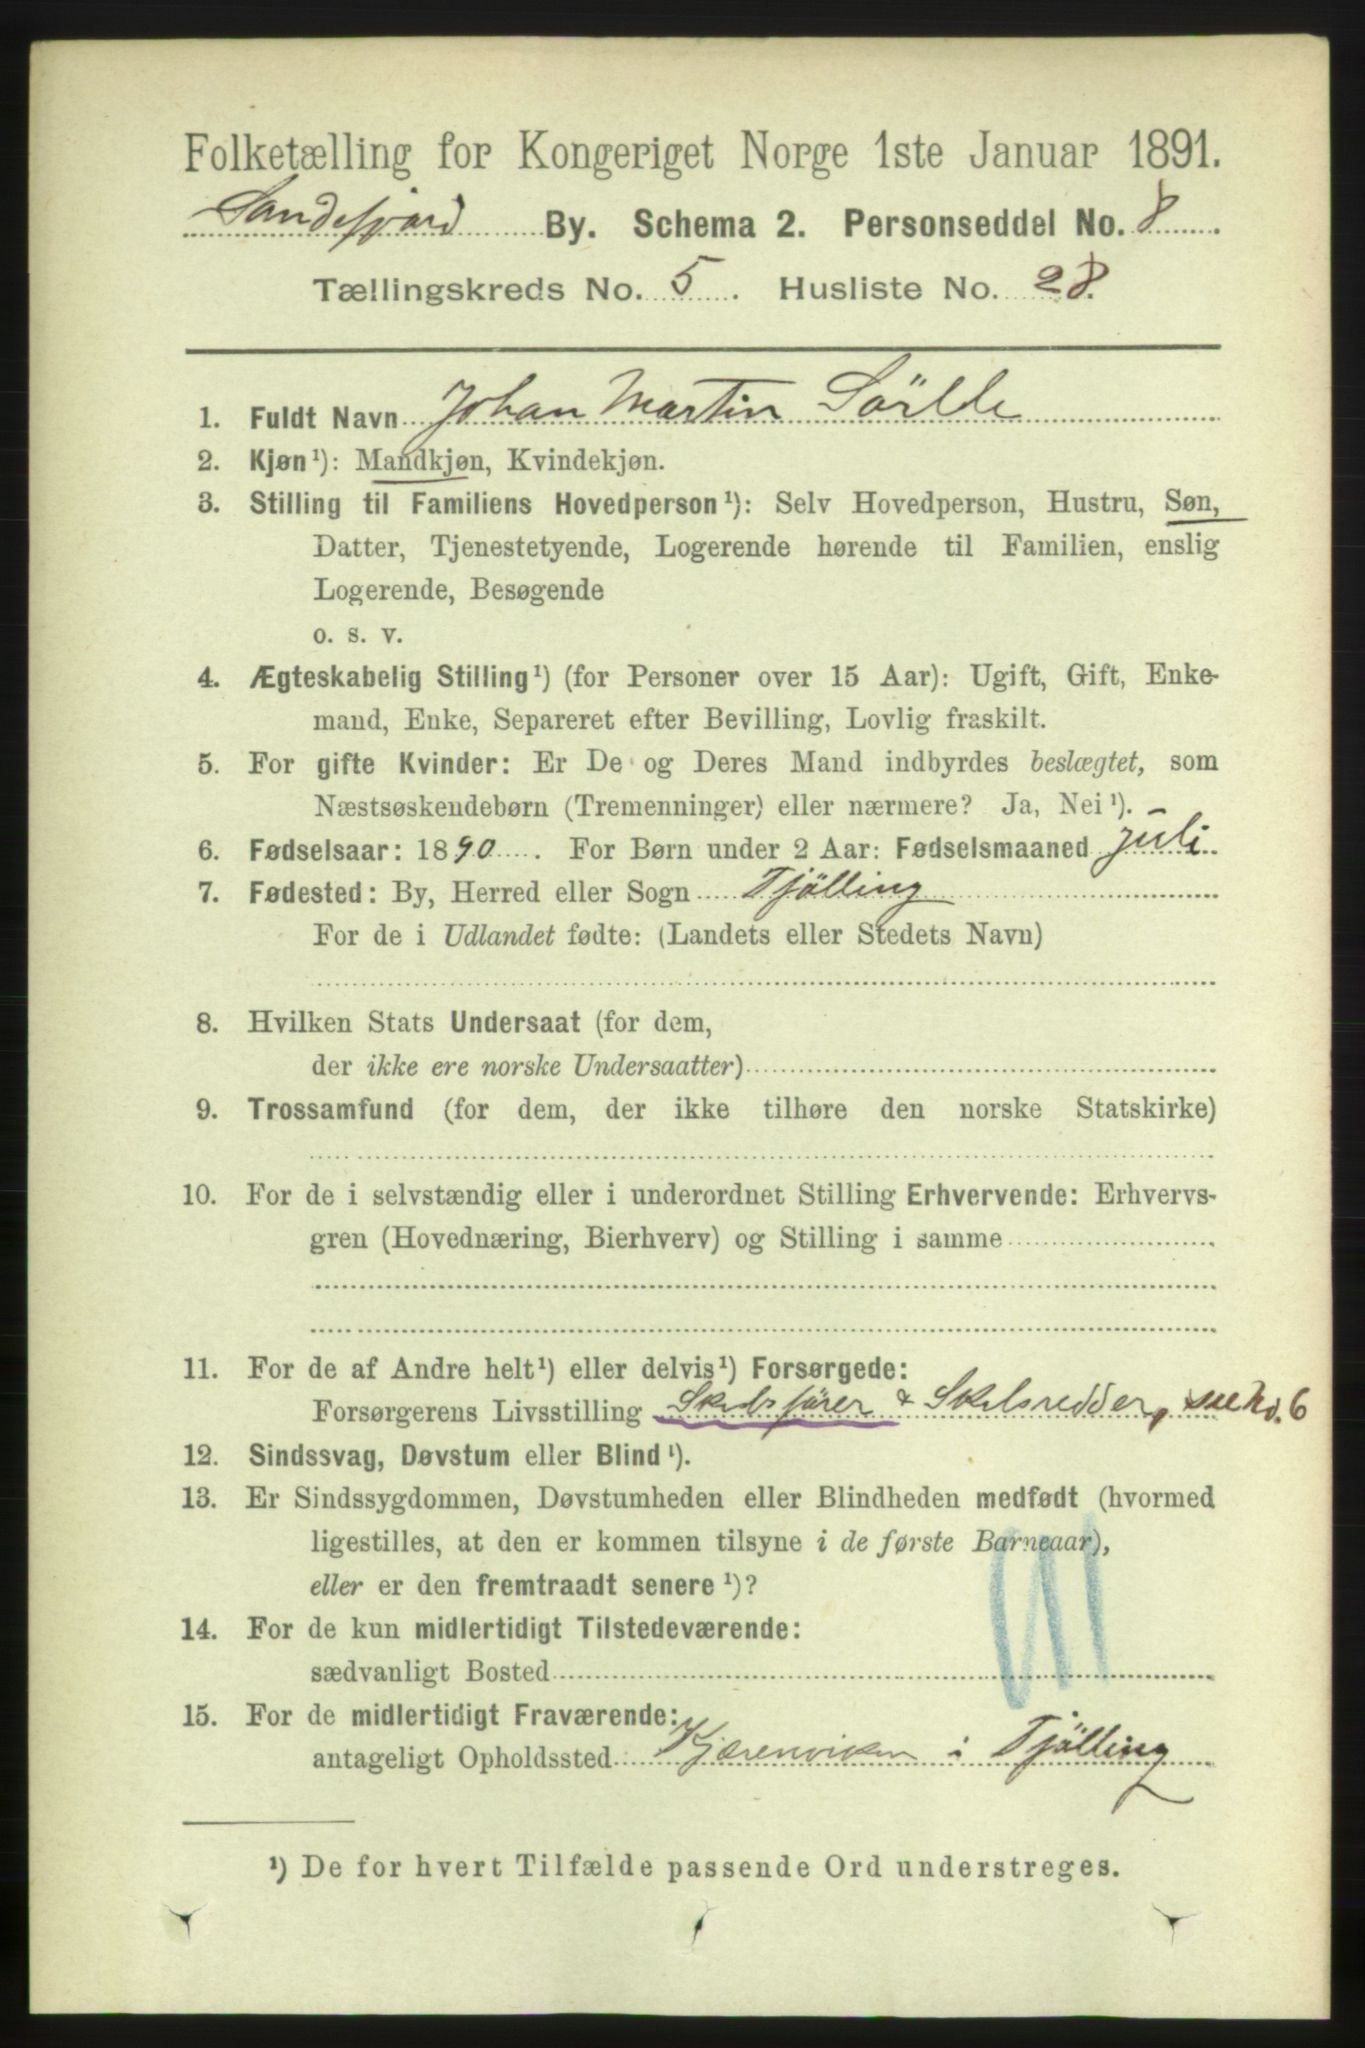 Folketælling for Kongeriget Norge 1ste Januar 1891.
Sandefjord By. Schema 2. Personseddel No. 8
Tællingskreds No. 5. Husliste No. 28.
1. Fuldt Navn Johan Martin Sörlle
2. Kjøn¹): Mandkjøn, Kvindekjøn.
3. Stilling til Familiens Hovedperson¹): Selv Hovedperson, Hustru, Søn,
Datter, Tjenestetyende, Logerende hørende til Familien, enslig
Logerende, Besøgende
o. s. v.
4. Ægteskabelig Stilling¹) (for Personer over 15 Aar): Ugift, Gift, Enke-
mand, Enke, Separeret efter Bevilling, Lovlig fraskilt.
5. For gifte Kvinder: Er De og Deres Mand indbyrdes beslægtet, som
Næstsøskendebørn (Tremenninger) eller nærmere? Ja, Nei¹).
6. Fødselsaar: 1890. For Børn under 2 Aar: Fødselsmaaned Juli
7. Fødested: By, Herred eller Sogn Tjölling
For de i Udlandet fødte: (Landets eller Stedets Navn)
8. Hvilken Stats Undersaat (for dem,
der ikke ere norske Undersaatter)
9. Trossamfund (for dem, der ikke tilhøre den norske Statskirke)
10. For de i selvstændig eller i underordnet Stilling Erhvervende: Erhvervs-
gren (Hovednæring, Bierhverv) og Stilling i samme
11. For de af Andre helt¹) eller delvis¹) Forsørgede:
Forsørgerens Livsstilling Skibsfører & Skibsredder, se No. 6
12. Sindssvag, Døvstum eller Blind¹).
13. Er Sindssygdommen, Døvstumheden eller Blindheden medfødt (hvormed
ligestilles, at den er kommen tilsyne i de første Barneaar),
eller er den fremtraadt senere¹)?
14. For de kun midlertidigt Tilstedeværende:
sædvanligt Bosted
15. For de midlertidigt Fraværende:
antageligt Opholdssted Kjærenviken i Tjölling
¹) De for hvert Tilfælde passende Ord understreges.